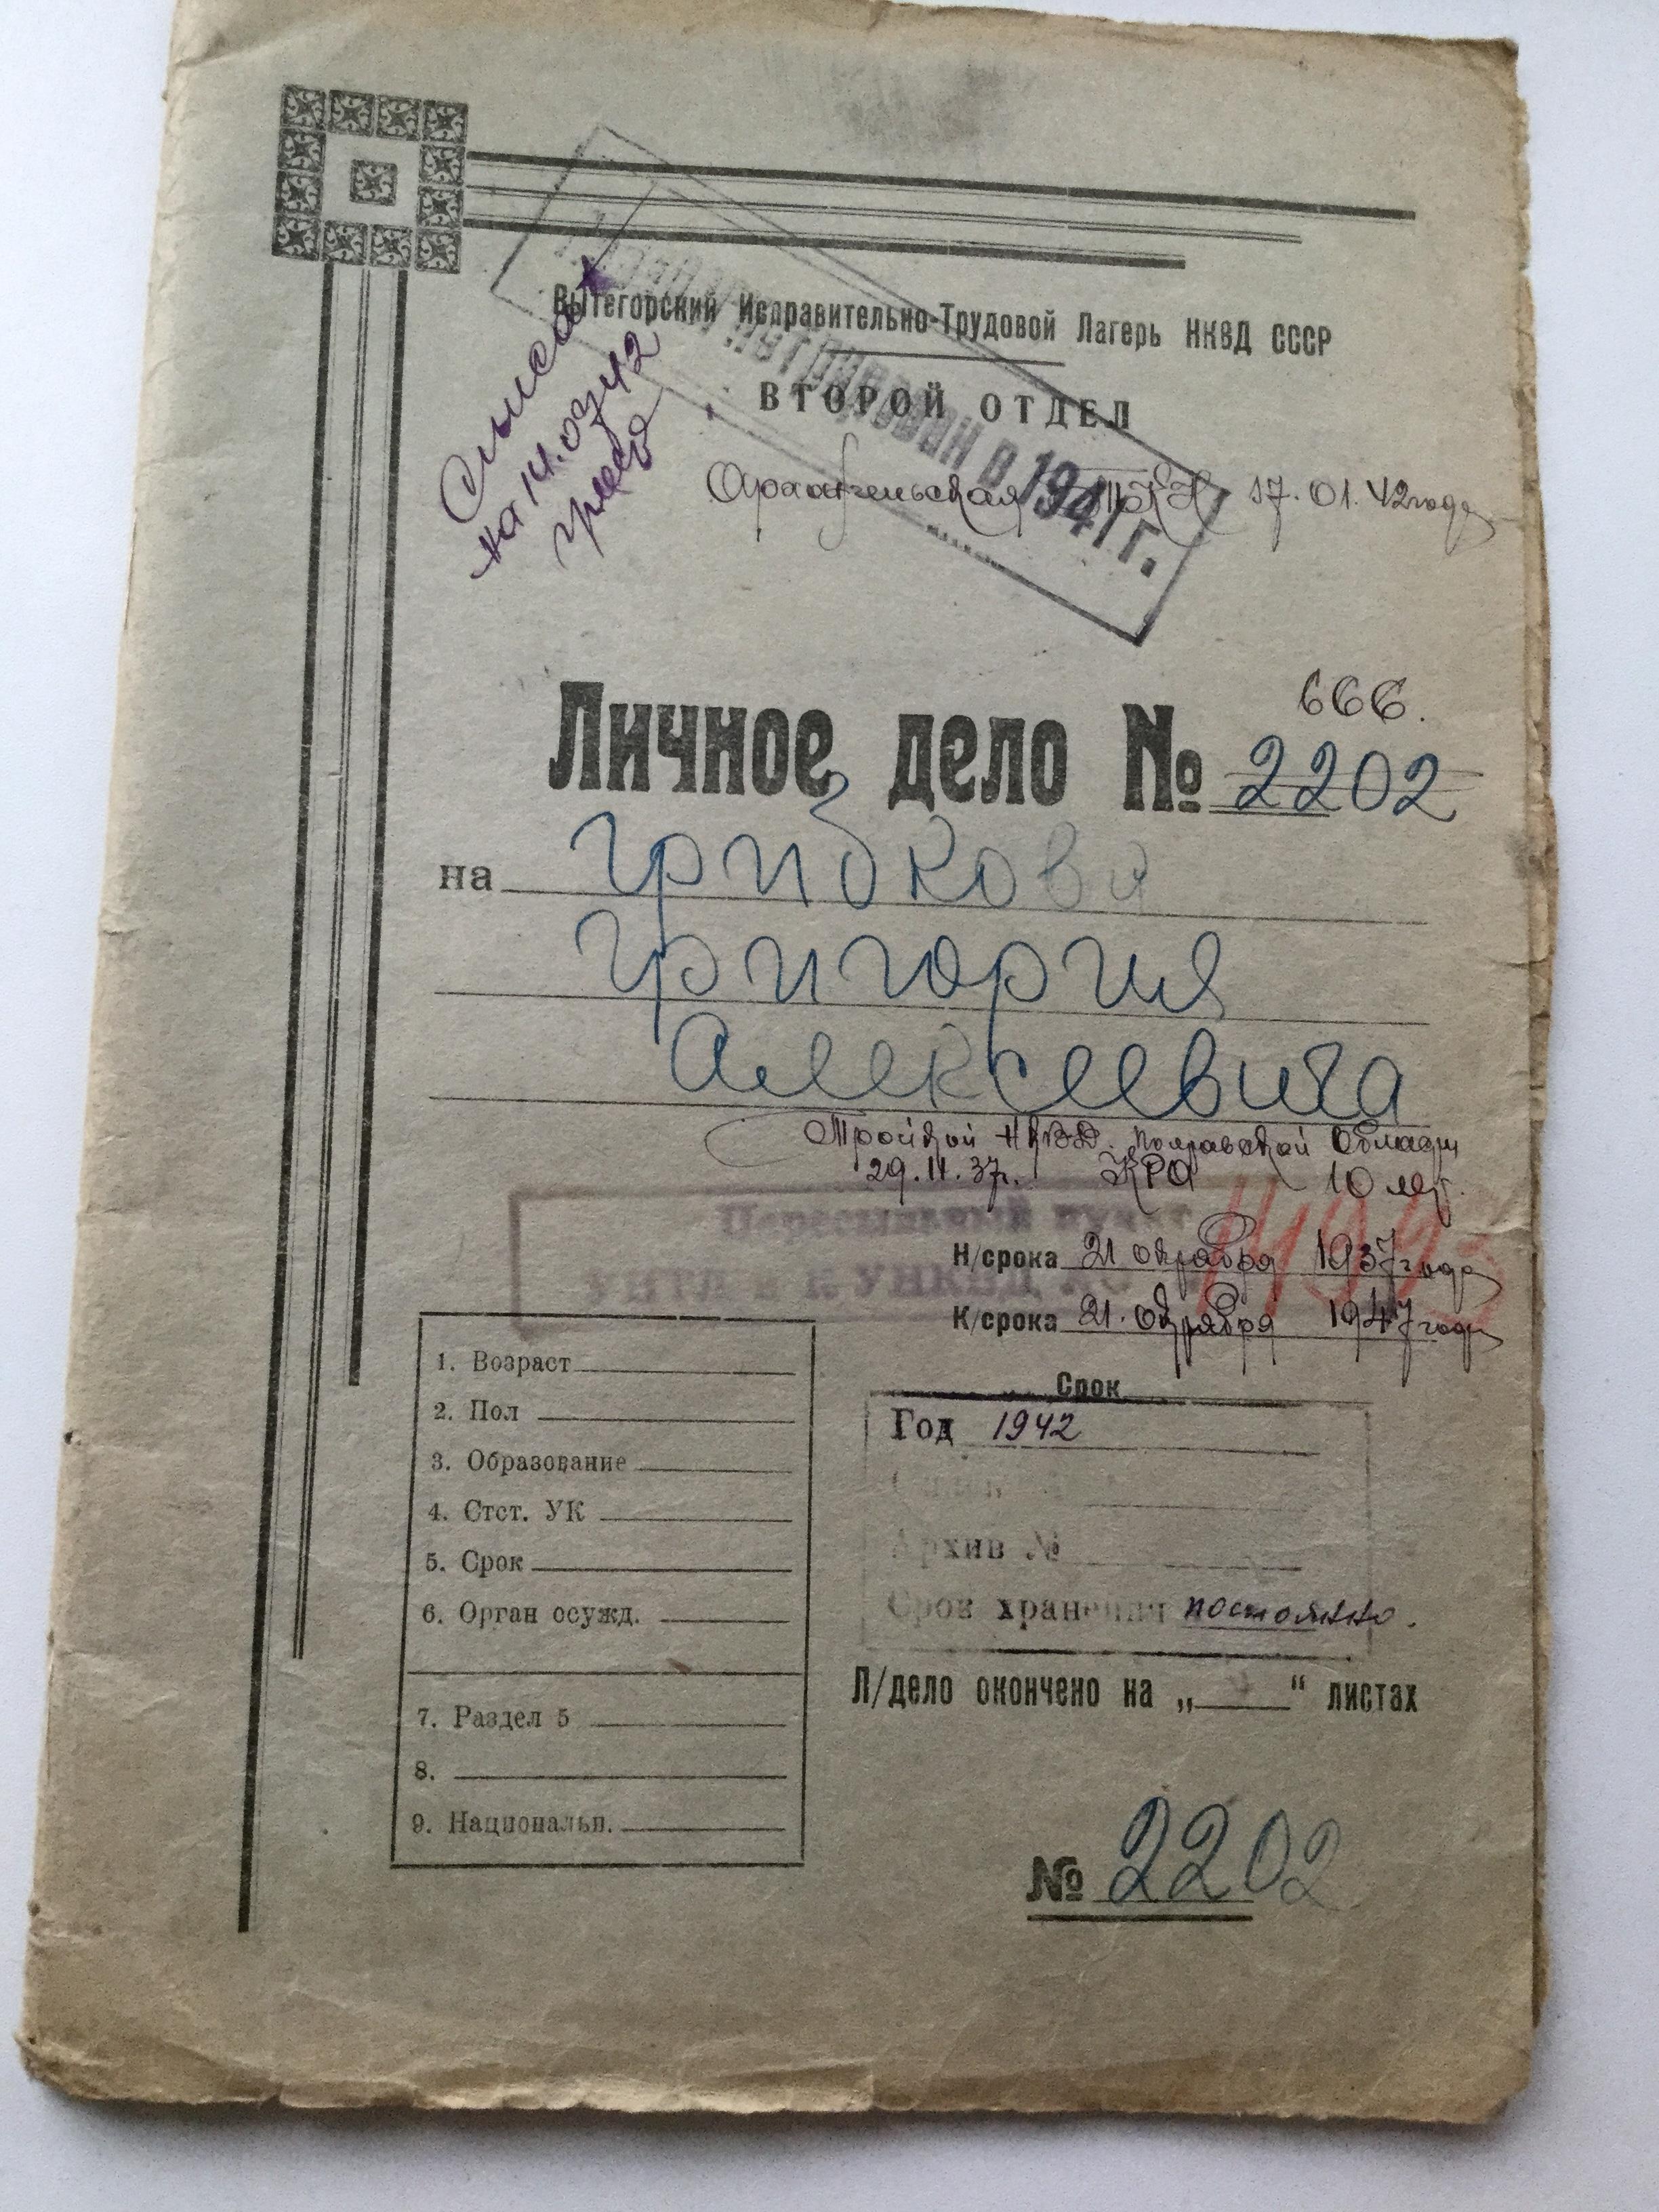 Вытегорский Исправительно-Трудовой Лагерь НКВД СССР
ВТОРОЙ ОТДЕЛ
в 1941 г.
Архангельская 17.01.42 года
на 14.03.42
Личное дело № 2202
666.
на Грибкова
Григория
Алексеевича
Тройкой НКВД. Полтавской Области
29.11.37г. КРО 10 лет.
Пересыльный пункт
Н/срока 21 октября 1937 года
К/срока 21. октября 1947 года
Срок
Год 1942
Архив №
Срок хранения постоянно.
Л/дело окончено на „ “ листах
1. Возраст
2. Пол
3. Образование
4. Стст. УК
5. Срок
6. Орган осужд.
7. Раздел 5
8.
9. Национальн.
№ 2202